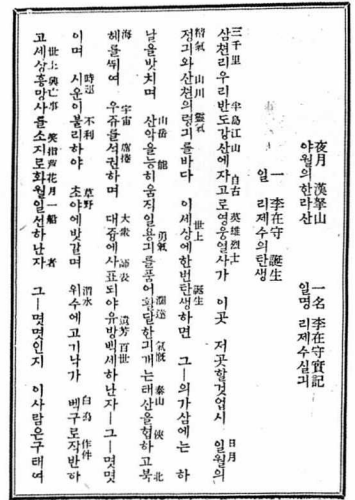 夜月 漢拏山
야월의한라산
一名 李在守實記
일명 리제수실긔
一 李在守 誕生
일 리제수의탄생
三千里 半島江山 自古 英雄烈士 日月
삼쳔리우리반도강산에자고로영웅열사가 이곳 저곳할것업시 일월의
精氣 山川 靈氣 世上 誕生
정긔와산쳔의령긔를바다 이세상에한번탄생하면 그―의가삼에는 하
山岳 能 勇氣 豁達 氣槪 泰山 俠 北
날을밧치며 산악을능히움직일용긔를품어활달한긔개는태산을협하고북
海 宇宙 席捲 大衆 師表 遺芳百世
헤를뛰여 우쥬를석권하며 대즁에사표되야유방벡세하난자―그―몃몃
時運 不利 草野 渭水 作伴
이며 시운이불리하야 초야에밧갈며 위수에고기낙가 벡구로작반하
世上興亡事 笑指芦花月一船 者
고세상흥망사를소지로화월일선하난자 그―몃몃인지 이사람은구태여